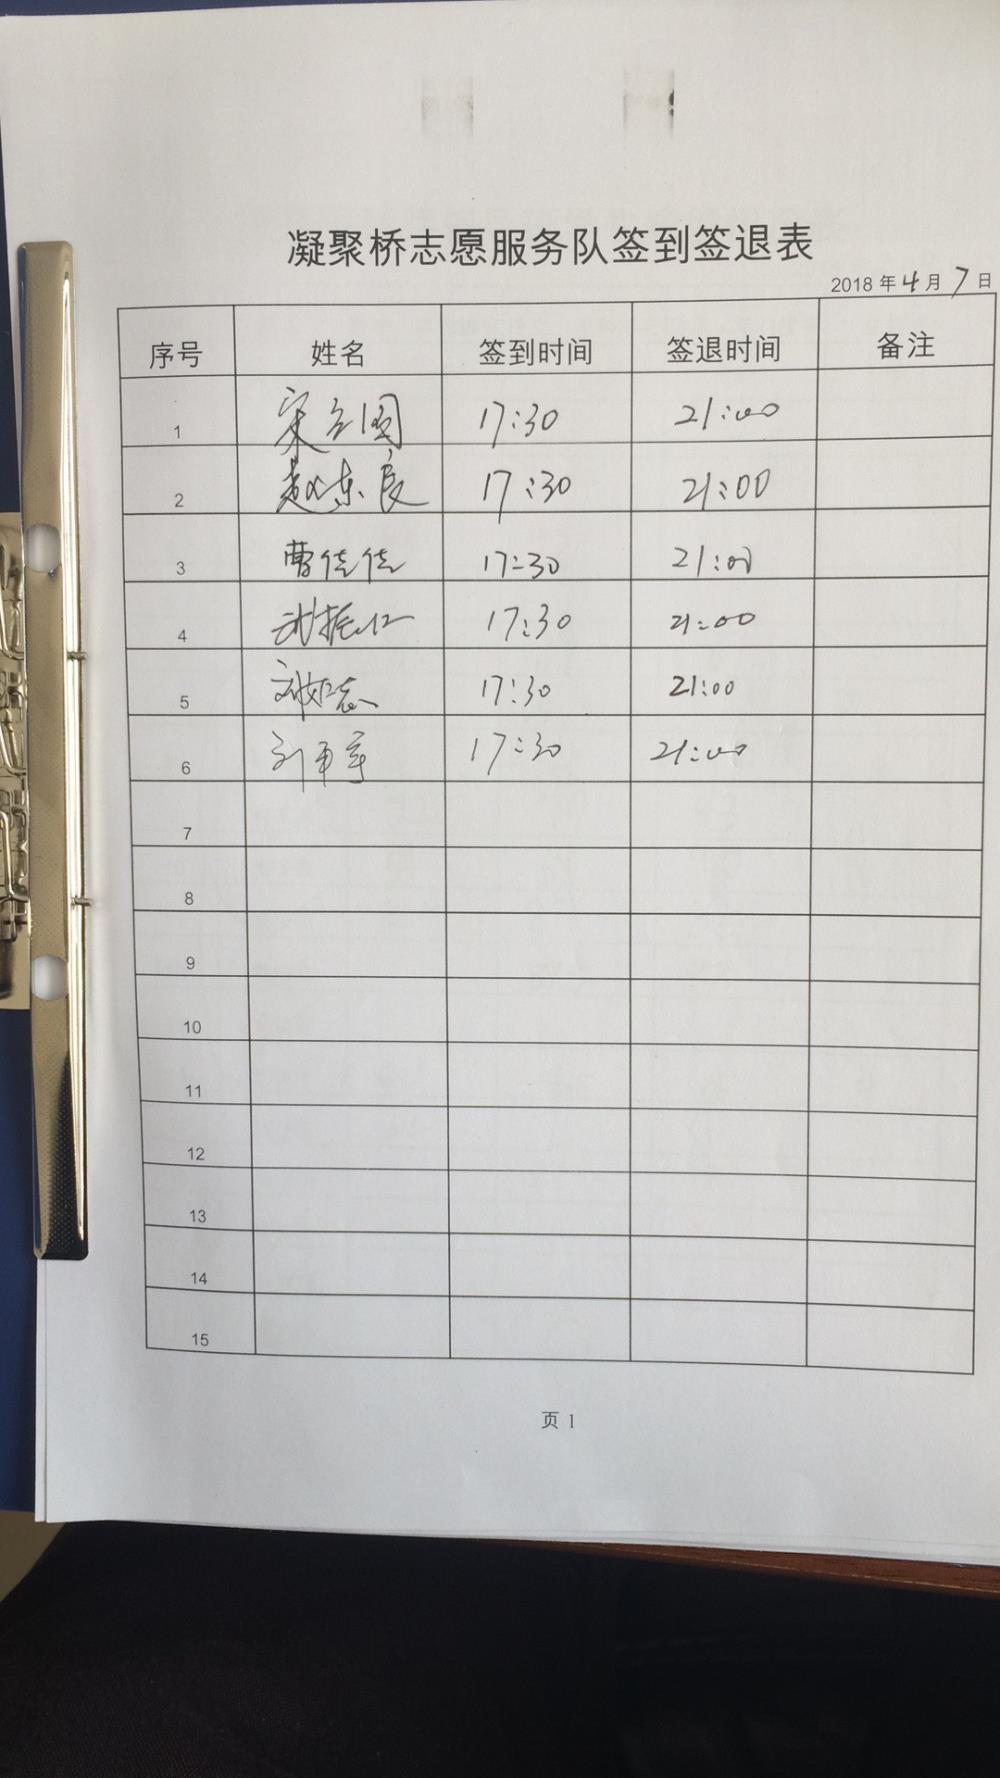 凝聚桥志愿服务队签到签退表
2018 年 4 月 7 日
序号 姓名 签到时间 签退时间 备注
1 宋立国 17:30 21:00
2 赵东良 17:30 21:00
3 曹佳佳 17:30 21:00
4 武振江 17:30 21:00
5 17:30 21:00
6 17:30 21:00
7
8
9
10
11
12
13
14
15
页 1